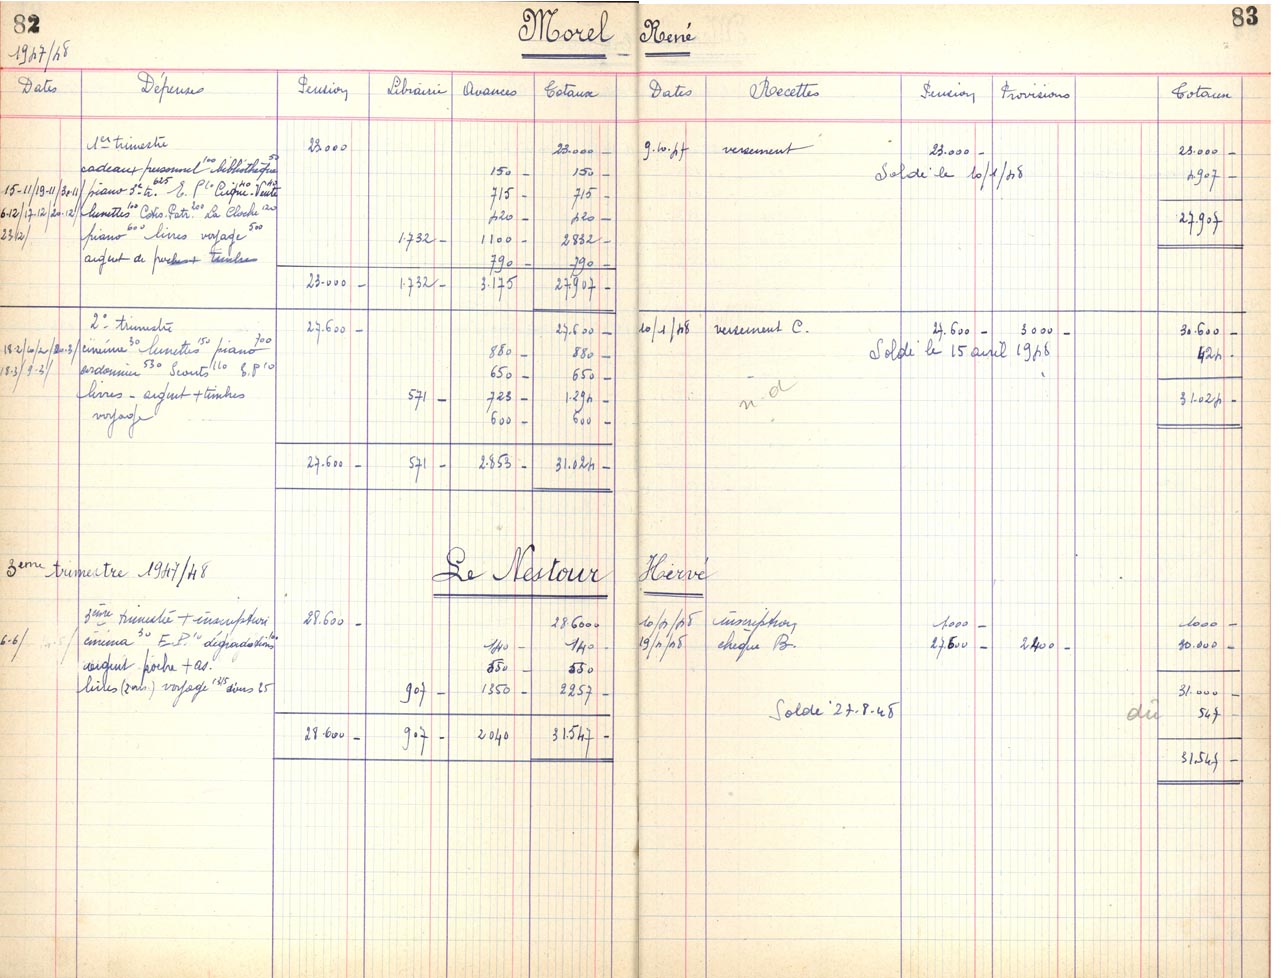 82 Morel René 83
1947/48
Dates Dépenses Pension Librairie Avances Totaux Dates Recettes Pension Provisions Totaux
1er trimestre 23.000 23.000 - 9.10.47 versement 23.000 - 23.000 -
cadeaux personnel 100 bibliothèque 50 150 - 150 - Soldé le 10/1/48 4907 -
15-11/19-11/30-11/ piano 625 E.P 10 40 Vente 40 715 - 715 -
6-12/17-12/20-12/ lunettes 100 Cotis. Patr. 200 La Cloche 120 420 - 420 - 27.907 -
23/12/ piano 600 livres voyage 500 1.732 - 1100 - 2832 -
argent de poche + timbres 790 - 790 -
23.000 - 1.732 - 3.175 27.907 -
2e trimestre 27.600 - 27.600 - 10/1/48 versement C. 27.600 - 3000 - 30.600 -
cinéma 30 lunettes 150 piano 700 880 - 880 - Soldé le 15 avril 1948 424 -
18.3/ 9.3/ cordonnier 530 Scouts 110 E.P 10 650 - 650 -
livres - argent + timbres 571 - 723 - 1.294 - n.d 31.024 -
voyage 600 - 600 -
27.600 - 571 - 2.853 - 31.024 -
3ème trimestre 1947/48 Le Nestour Hervé
3ème trimestre + inscription 28.600 - 28.600 10/4/48 inscription 1000 - 1000 -
6-6/ cinéma 30 E.P. 10 dégradations 100 140 - 140 - 19/4/48 chèque B. 27.600 - 2400 - 30.000 -
argent poche + as. 550 - 550 -
livres voyage 1325 divers 25 907 - 1350 - 2257 - 31.000 -
Soldé 27.8.48 dû 547 -
28.600 - 907 - 2040 31.547 -
31.547 -